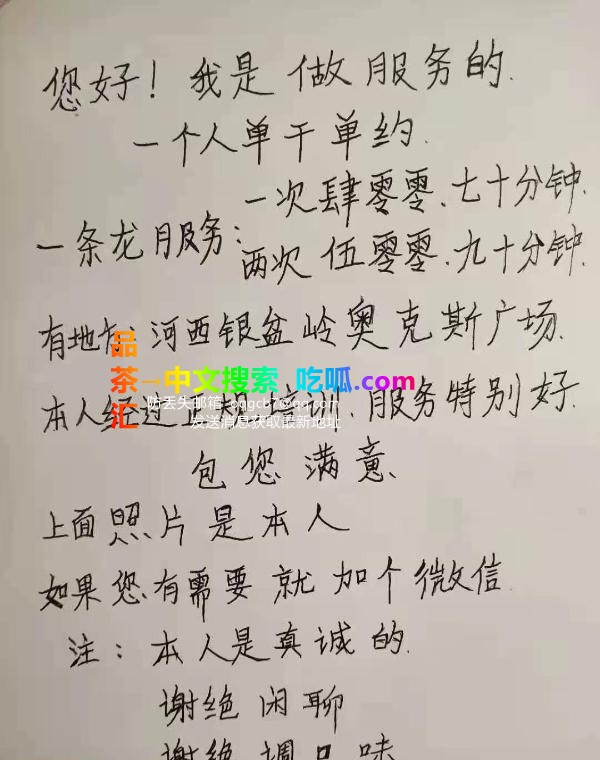 您好！我是做服务的.
一个人单干单约.
一次肆零零.七十分钟.
一条龙服务：
两次伍零零.九十分钟.
有地方：河西银盆岭奥克斯广场.
品茶汇
中文搜索 吃呱.com
防丢失邮箱
发送消息获取最新地址
本人经过 培训.服务特别好.
包您满意、
上面照片是本人
如果您有需要就加个微信.
注：本人是真诚的.
谢绝闲聊
谢绝调口味